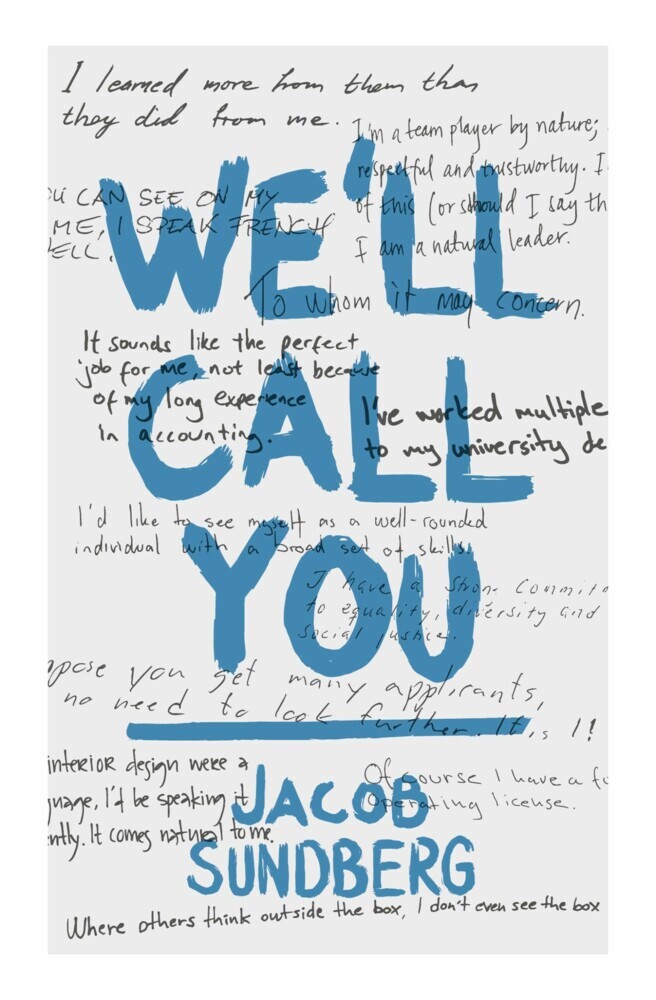 I learned more from them than
they did from me.
I'm a team player by nature;
respectful and trustworthy. I
of this (or should I say th
I am a natural leader.
U CAN SEE ON MY
ME, I SPEAK FRENCH
ELL.
WE'LL
To whom it may concern.
It sounds like the perfect
job for me, not least because
of my long experience
in accounting.
I've worked multiple
to my university de
CALL
I'd like to see myself as a well-rounded
individual with a broad set of skills.
YOU
I have a strong commitm
to equality, diversity and
social justice.
pose you get many applicants,
no need to look further. It is I!
interior design were a
guage, I'd be speaking it
ently. It comes natural to me.
Of course I have a fo
operating license.
JACOB
SUNDBERG
Where others think outside the box, I don't even see the box